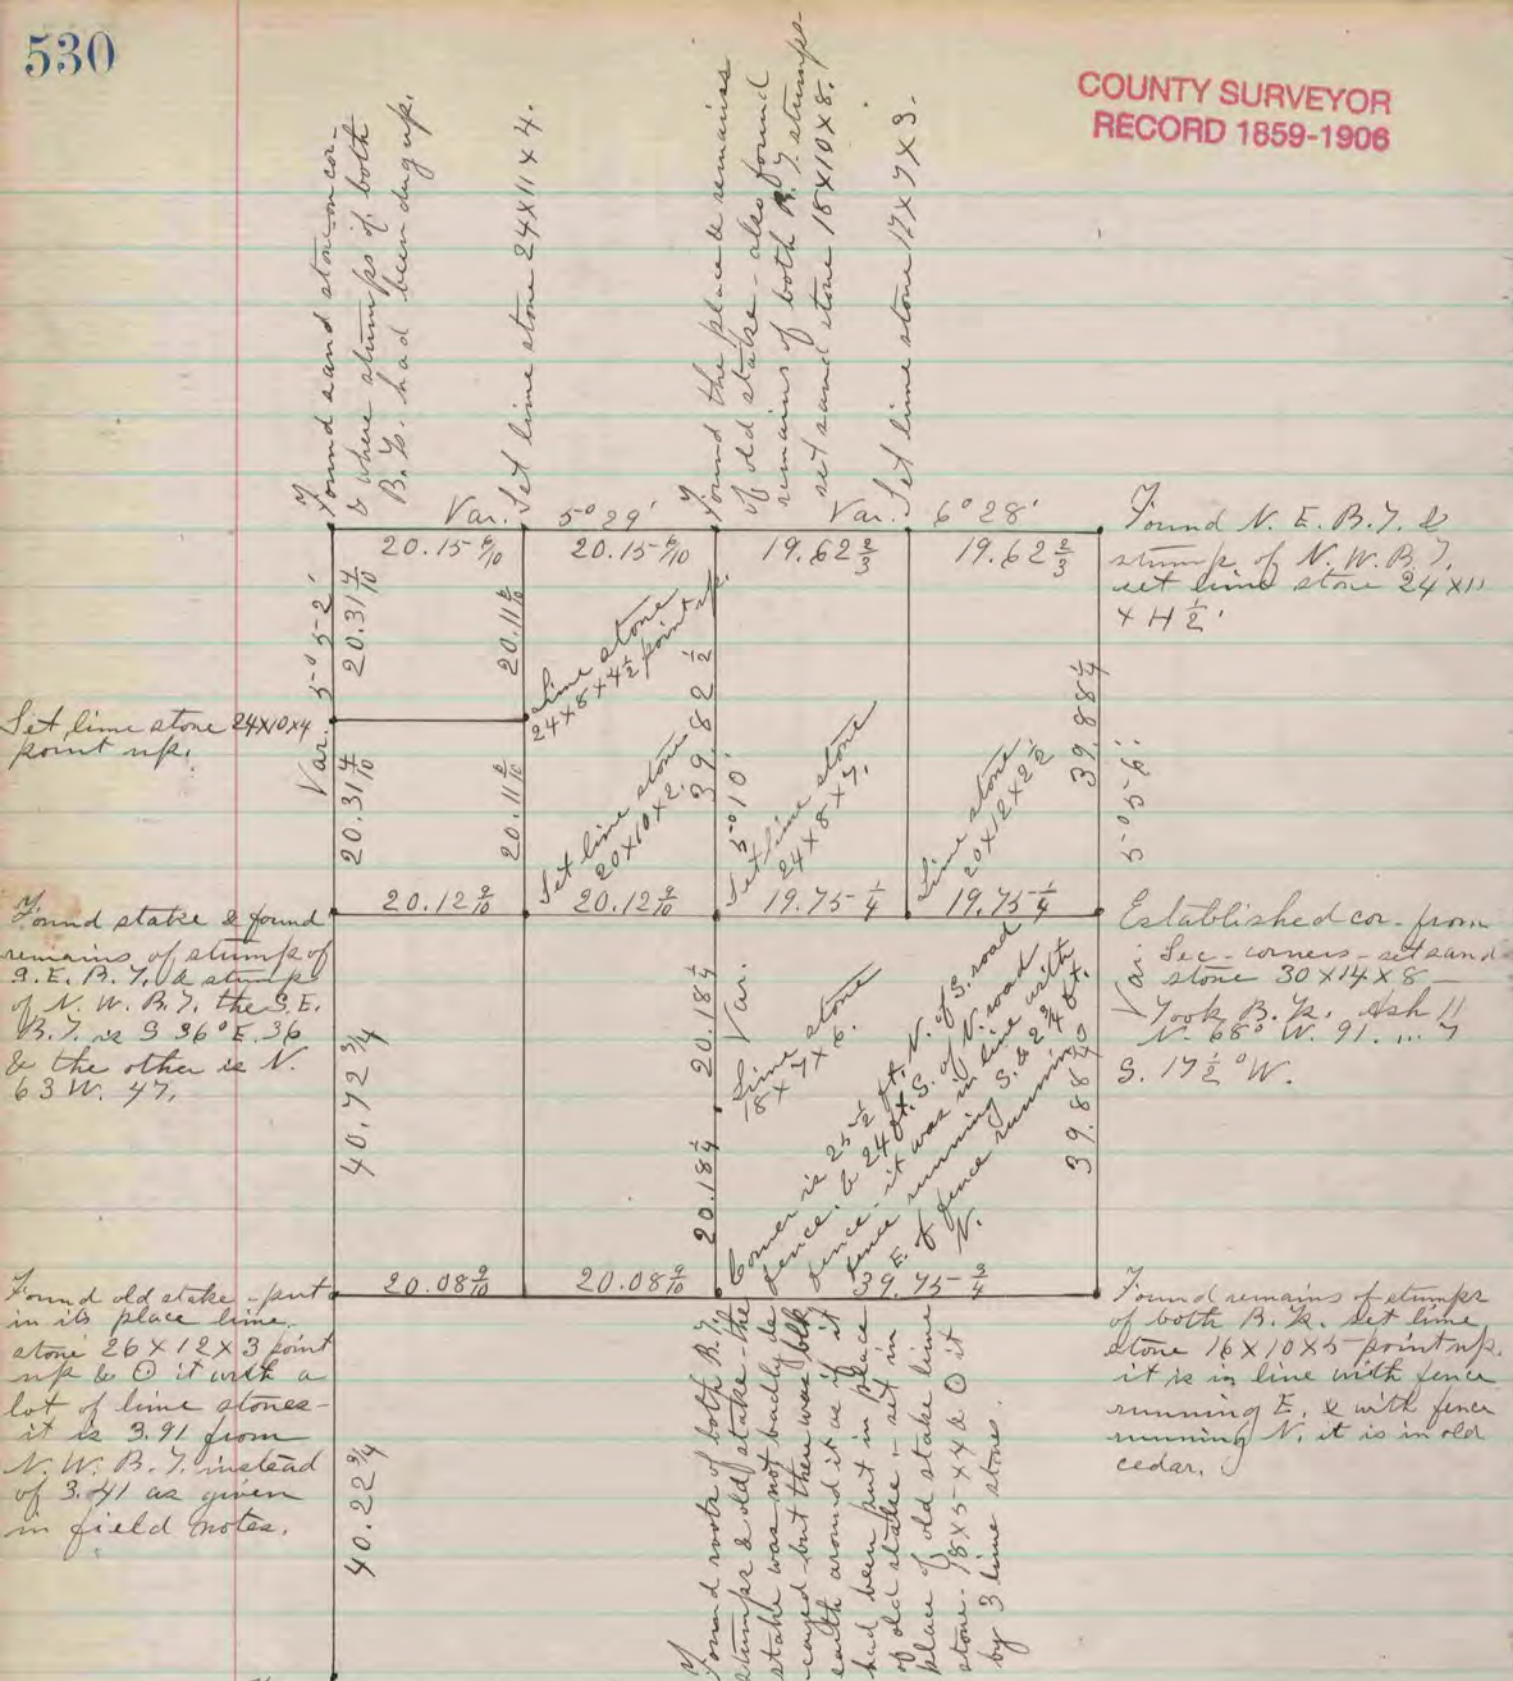 530
COUNTY SURVEYOR
RECORD 1859-1906
Found sand stone on cor-
& where stumps of both
B. Ts. had been dug up.
Set lime stone 24X11X4.
Found the place & remains
of old stake - also found
remains of both B. T. stumps-
set sand stone 18X10X8.
Set lime stone 17X7X3.
Var. 5° 29'
Var. 6° 28'
20.15 6/10
20.15 6/10
19.62 2/3
19.62 2/3
Found N. E. B. T. &
stump of N. W. B. T.
set lime stone 24X11
X 4 1/2.
Var. 5° 52'
20.31 4/10
20.11 6/10
Lime stone
24X8X4 1/2 point up.
Set lime stone 24X10X4
point up.
20.31 4/10
20.11 6/10
39.82 1/2
5° 10'
Var.
39.88 1/4
5° 56'
Var.
Set lime stone
20X10X2.
Set lime stone
24X8X7.
Lime stone
20X12X2 1/2
20.12 9/10
20.12 9/10
19.75 1/4
19.75 1/4
Found stake & found
remains of stump of
S. E. B. T. & stump
of N. W. B. T. the S. E.
B. T. is S 36° E. 36
& the other is N.
63 W. 47.
Established cor- from
Sec- corners - set sand
stone 30X14X8 -
Took B. Ts. Ash 11
N. 68° W. 91. ... 7
S. 17 1/2° W.
40.72 3/4
20.18 1/4
Lime stone
18X7X6.
20.18 1/4
39.88
Corner is 25 1/2 ft. N. of S. road
fence. & 24 ft. S. of N. road
fence - it was in line with
fence running S. & 2 3/4 ft.
E. of fence running
N.
20.08 9/10
20.08 9/10
39.75 3/4
Found old stake - put
in its place lime
stone 26X12X3 point
up & ⊙ it with a
lot of lime stones -
it is 3.91 from
N. W. B. T. instead
of 3.41 as given
in field notes.
40.22 3/4
Found roots of both B. T.
stumps & old stake - the
stake was not badly de
cayed - but there was blk
earth around it as if it
had been put in place
of old stake - set in
place of old stake lime
stone. 18X5X4 & ⊙ it
by 3 lime stones.
Found remains of stumps
of both B. Ts. set lime
stone 16X10X5 point up.
it is in line with fence
running E. & with fence
running N. it is in old
cedar.